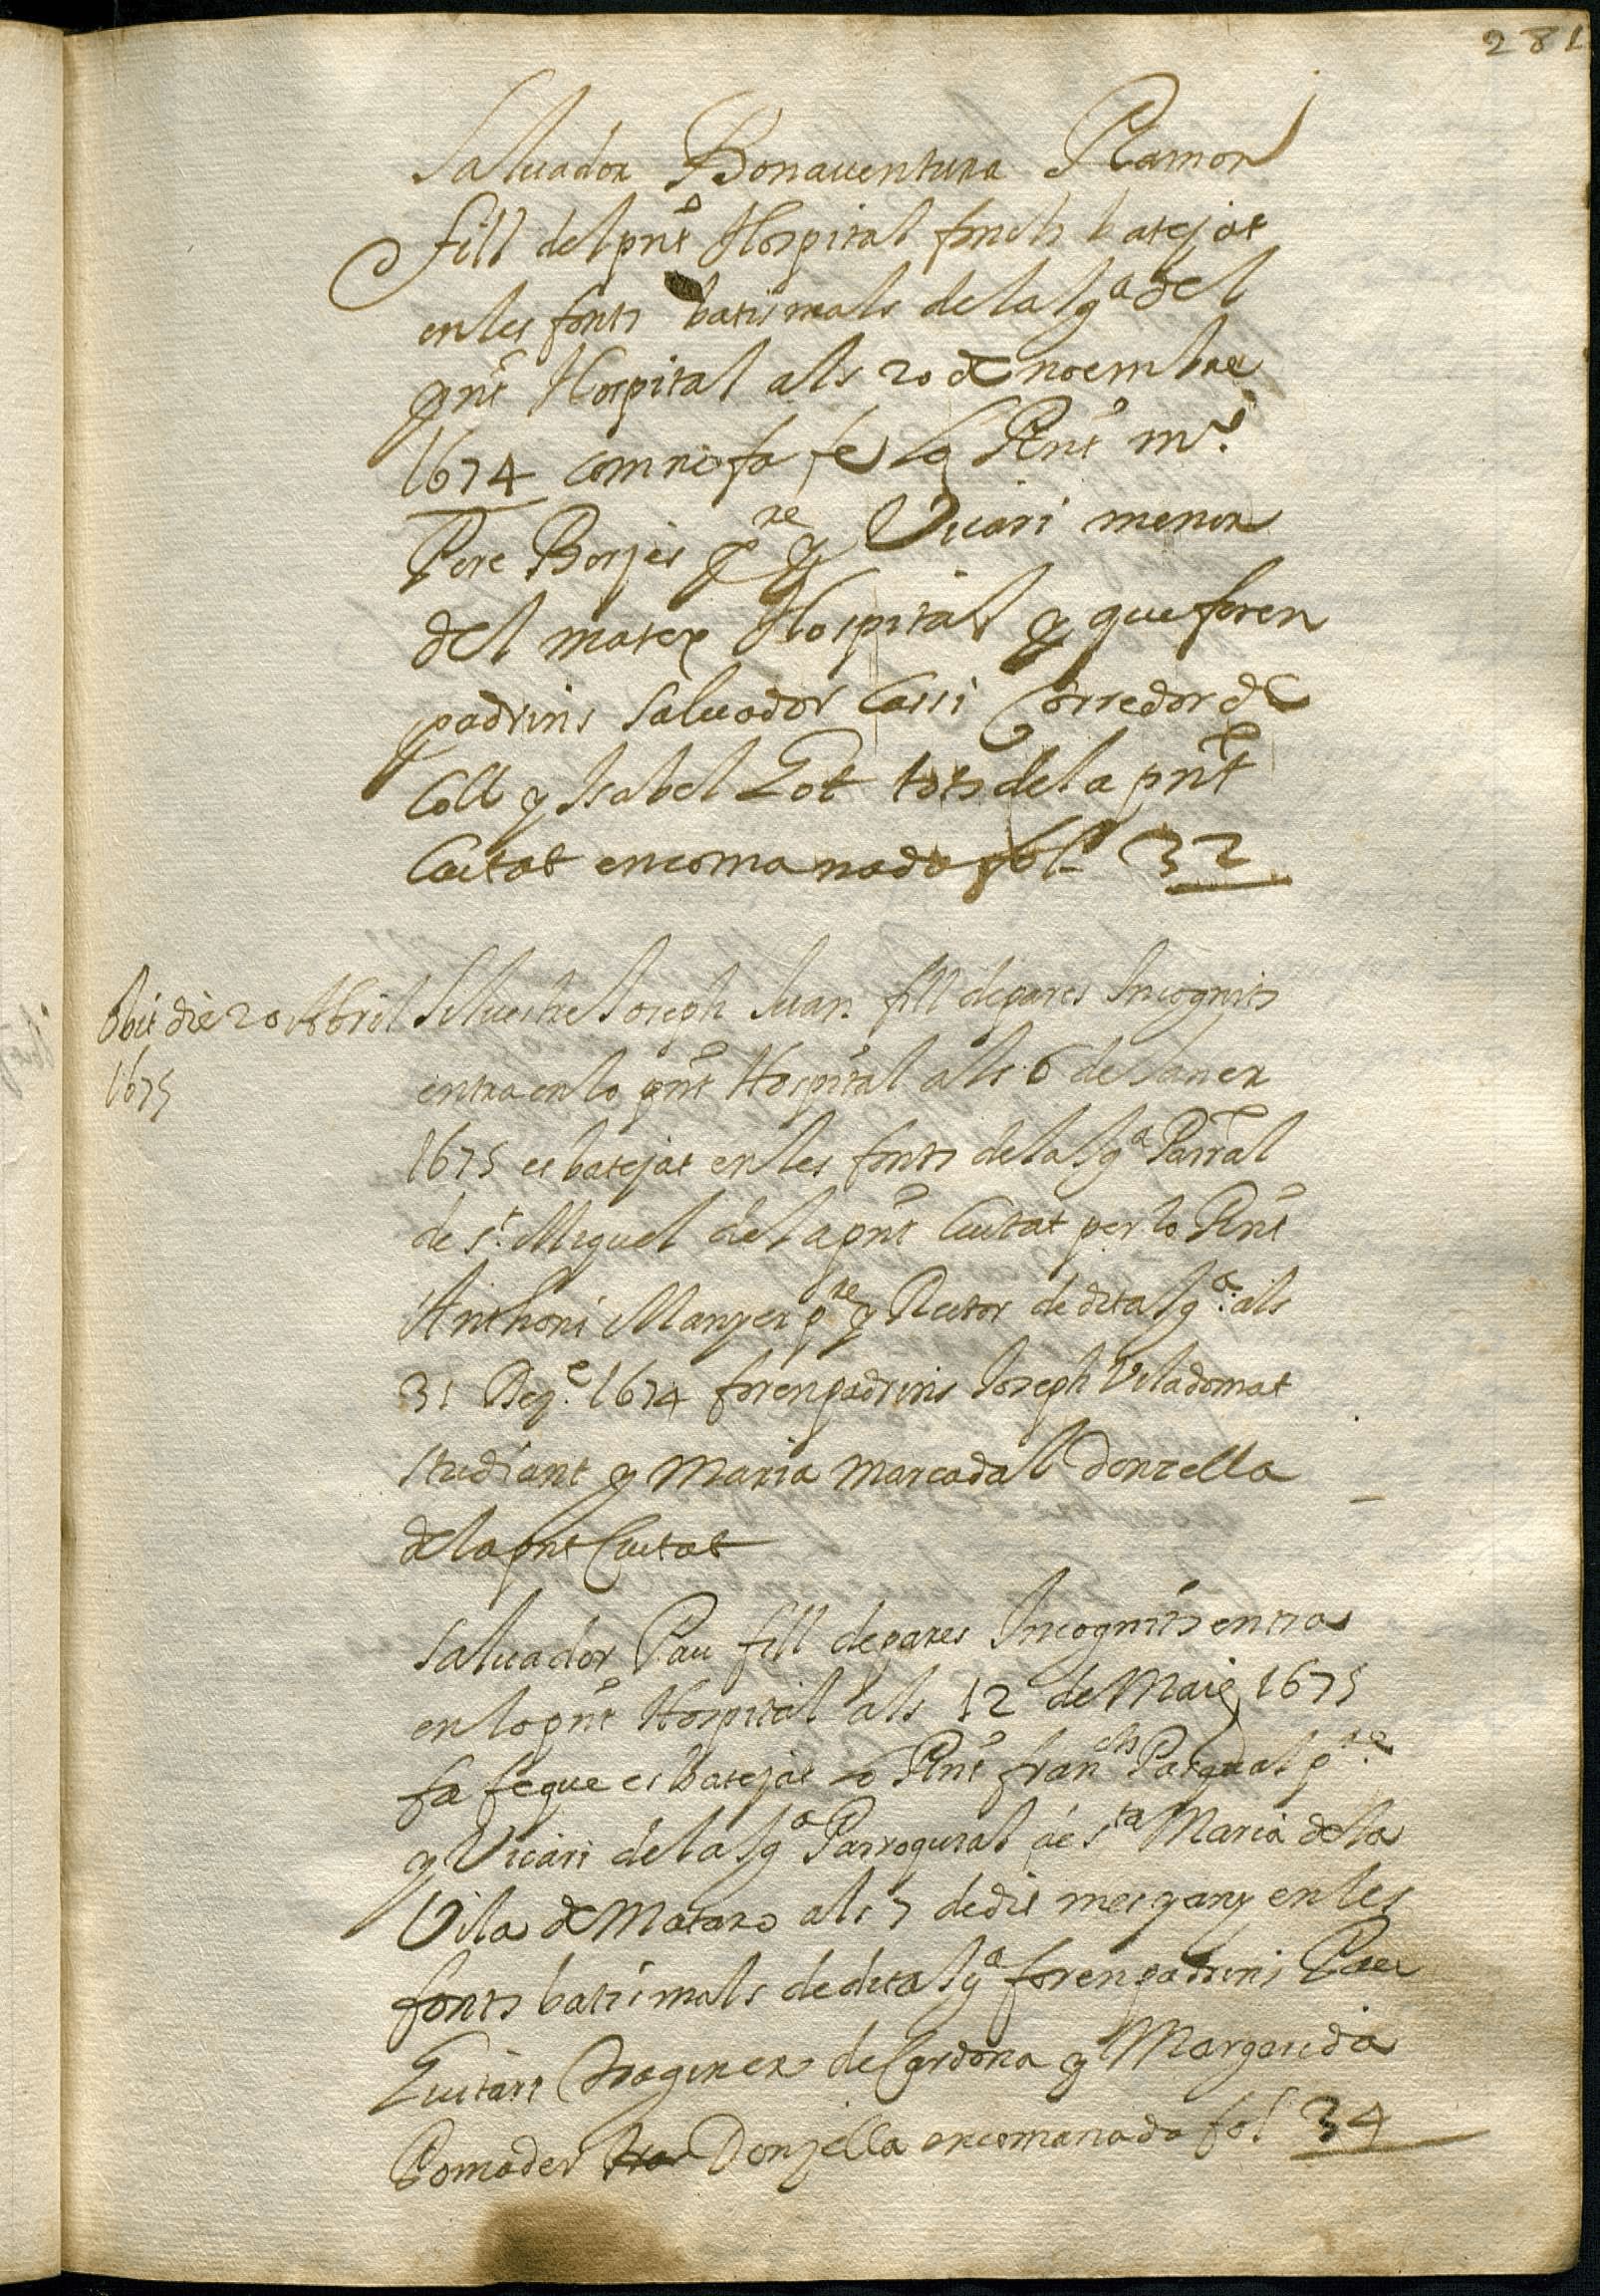 281
Saluador Bonauentura Ramon
fill del pnt Hospital fonch batejat
en les fonts batismals de la Iga del
pnt Hospital als 20 de noembre
1674 com ne fa fe lo Rnt mn.
Pere Borjes pre y Vicari menor
del matex Hospital y que foren
padrins Saluador Corredor de
Coll y Isabel Got tots de la pnt
Ciutat encomanada fol. 32
Obit die 20 Abril
1675
Siluestre Joseph Juan fill de pares Incognits
entra en lo pnt Hospital als 6 de Janer
1675 es batejat en les fonts de la Iga Parral
de St. Miquel de la pnt Ciutat per lo Rnt
Anthoni Manyer pre y Rector de dita Iga. als
31 Dez.e 1674 foren padrins Joseph Viladomat
studiant y Maria Marcadal donzella
de la pnt Ciutat
Saluador Pau fill de pares Incognits entra
en lo pnt Hospital als 12 de Maig 1675
fa fe que es batejat lo Rnt Franch Pasqual pre
y Vicari de la Iga Parroquial de Sta Maria de la
Vila de Mataro als 7 de dit mes y any en les
fonts batismals de dita Iga foren padrins Pau
Guitart traginer de Cardona y Margarida
Pomader Donzella encomanada fol 34